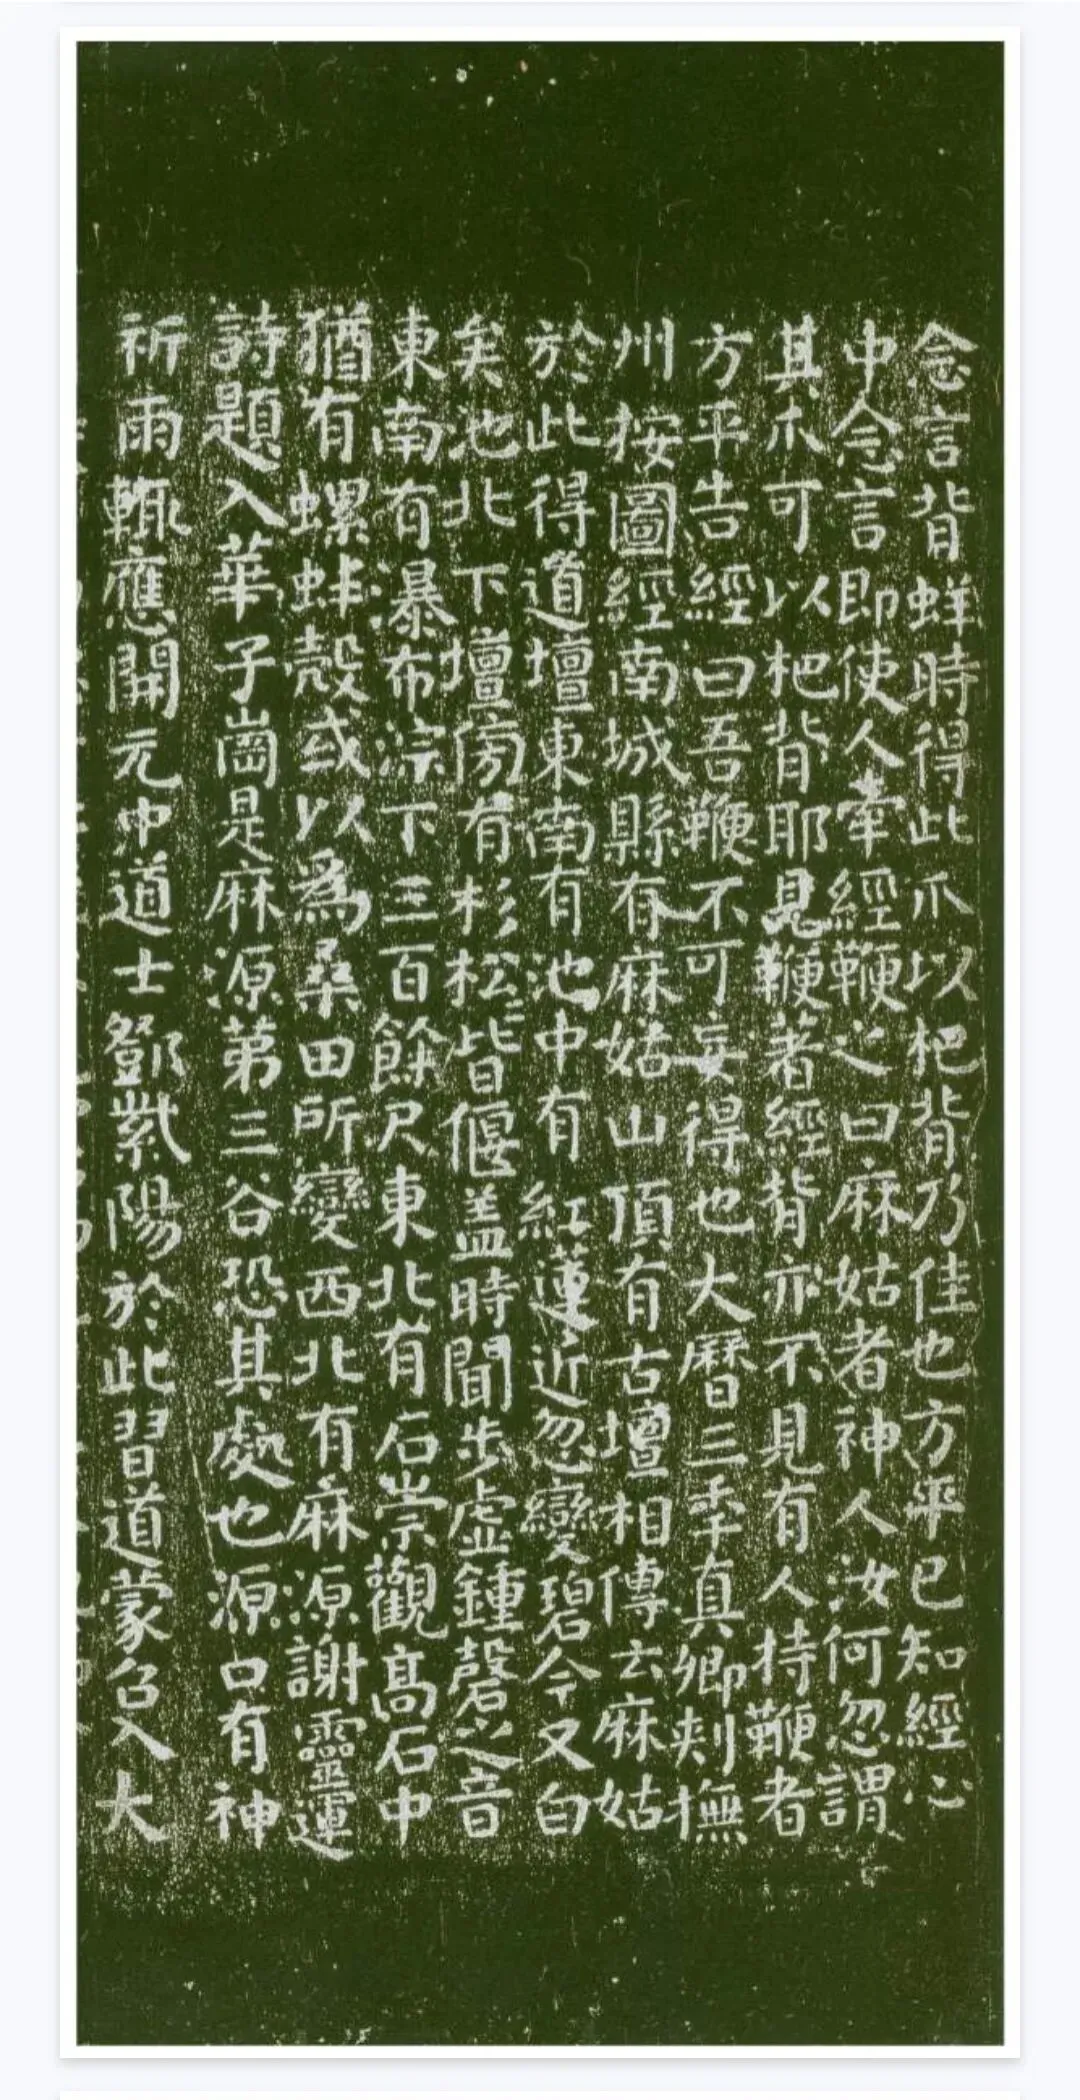 念言背蛘時得此爪以杷背乃佳也方平已知經心
中念言即使人牽經鞭之曰麻姑者神人汝何忽謂
其爪可以杷背耶見鞭著經背亦不見有人持鞭者
方平告經曰吾鞭不可妄得也大曆三秊真卿刾撫
州按圖經南城縣有麻姑山頂有古壇相傳云麻姑
於此得道壇東南有池中有紅蓮近忽變碧今又白
矣池北下壇傍有杉松松皆偃盖時聞步虛鍾磬之音
東南有瀑布淙下三百餘尺東北有石崇觀高石中
猶有螺蚌殼或以為桑田所變西北有麻源謝靈運
詩題入華子崗是麻源第三谷恐其處也源口有神
祈雨輒應開元中道士鄧紫陽於此習道蒙召入大